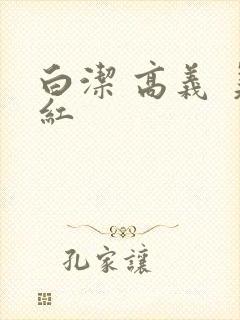 白潔 高義
紅
孔家讓